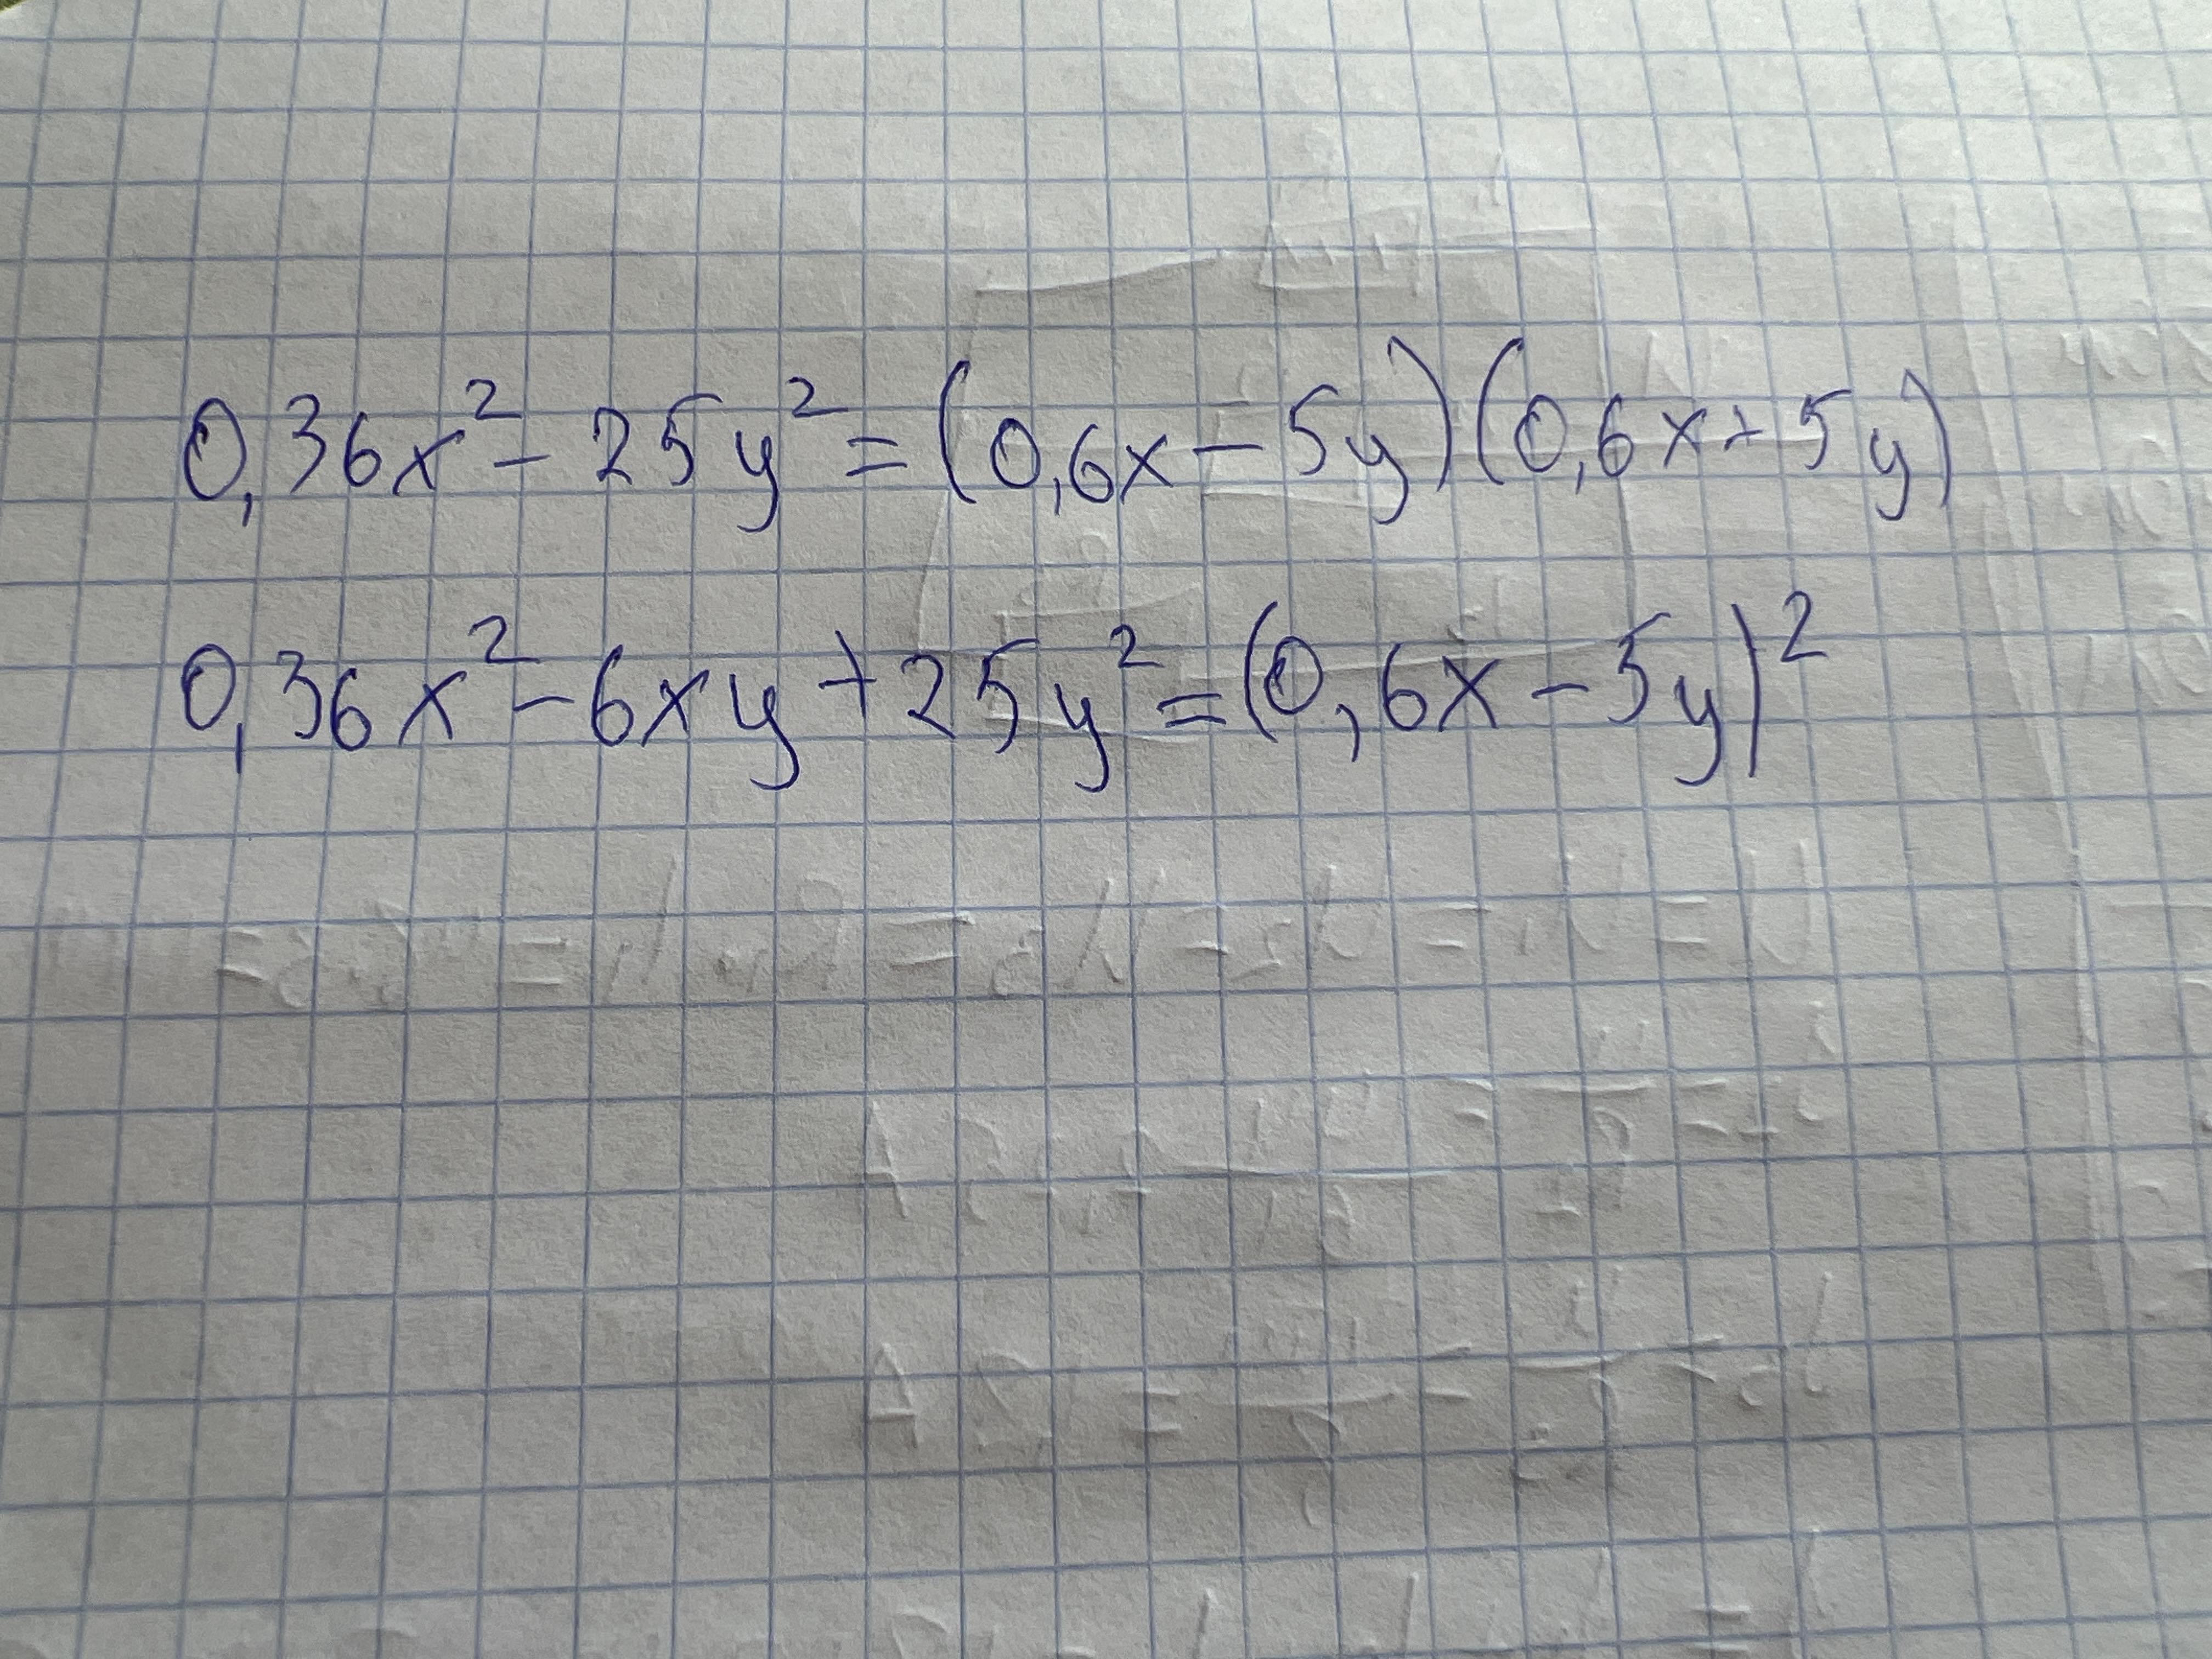 0,36x² - 25y² = (0,6x - 5y)(0,6x + 5y)
0,36x² - 6xy + 25y² = (0,6x - 5y)²